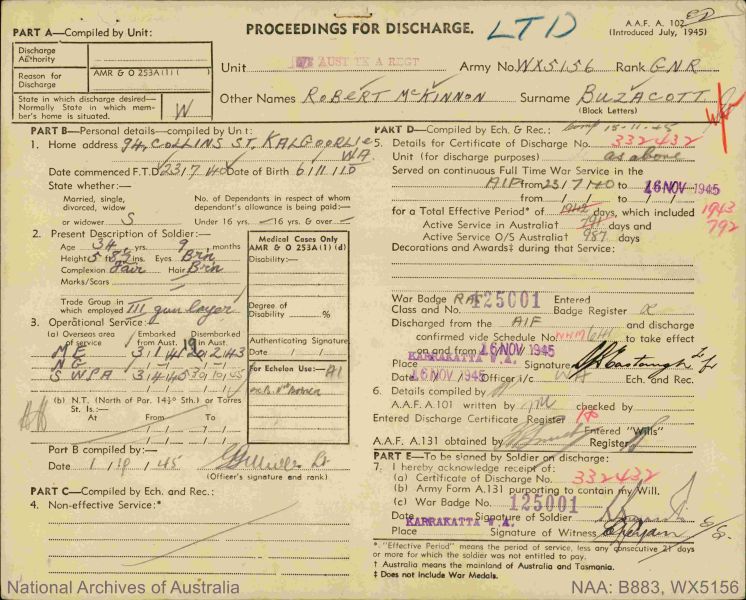 PART A—Compiled by Unit:
PROCEEDINGS FOR DISCHARGE.
LTD
A.A.F. A. 102
(Introduced July, 1945)
Discharge
Authority
Reason for
Discharge
AMR & O 253A(1)( )
State in which discharge desired—
Normally State in which mem-
ber's home is situated.
W
Unit AUST TK A REGT Army No. WX5156 Rank GNR
Other Names ROBERT McKINNON Surname BUZACOTT
(Block Letters)
PART B—Personal details—compiled by Unit:
1. Home address 94, COLLINS ST. KALGOORLIE
W.A.
Date commenced F.T.D. 23/7/40 Date of Birth 6/11/10
State whether—
Married, single,
divorced, widow
or widower S
No. of Dependants in respect of whom
dependant's allowance is being paid:—
Under 16 yrs. 16 yrs. & over
2. Present Description of Soldier:—
Age 34 yrs. 9 months
Height 5 ft 8½ ins. Eyes Brn
Complexion Fair Hair Brn
Marks/Scars
Trade Group in
which employed III gun layer
Medical Cases Only
AMR & O 253A(1)(d)
Disability:—
Degree of
Disability %
Authenticating Signature
Date / /
For Echelon Use:— A1
3. Operational Service:
(a) Overseas area
of service
Embarked
from Aust.
Disembarked
in Aust.
M E 3 1 41 20 2 43
N G
S W P A 3 4 45 30 10 45
(b) N.T. (North of Par. 14½° Sth.) or Torres
St. Is.:—
At From To
Part B compiled by:
Date 1/10/45
(Officer's signature and rank)
PART C—Compiled by Ech. and Rec.:
4. Non-effective Service:*
PART D—Compiled by Ech. & Rec:
15-11-45
5. Details for Certificate of Discharge No. 332432
Unit (for discharge purposes) as above
Served on continuous Full Time War Service in the
AIF from 23/7/40 to 16 NOV 1945
for a Total Effective Period* of 1942 days, which included 1943
Active Service in Australia† 791 days and 792
Active Service O/S Australia† 987 days
Decorations and Awards‡ during that Service:
War Badge RAS 125001 Entered
Class and No. Badge Register
Discharged from the AIF and discharge
confirmed vide Schedule No. to take effect
on and from 16 NOV 1945
KARRAKATTA W.A.
Place Signature
Date 16 NOV 1945 Officer i/c WA Ech. and Rec.
6. Details compiled by
A.A.F. A.101 written by checked by
Entered Discharge Certificate Register
A.A.F. A.131 obtained by Entered "Wills"
Register
PART E—To be signed by Soldier on discharge:
7. I hereby acknowledge receipt of:
(a) Certificate of Discharge No. 332432
(b) Army Form A.131 purporting to contain my Will.
(c) War Badge No. 125001
Date Signature of Soldier
KARRAKATTA W.A.
Place Signature of Witness
* "Effective Period" means the period of service, less any consecutive 21 days
or more for which the soldier was not entitled to pay.
† Australia means the mainland of Australia and Tasmania.
‡ Does not include War Medals.
National Archives of Australia
NAA: B883, WX5156